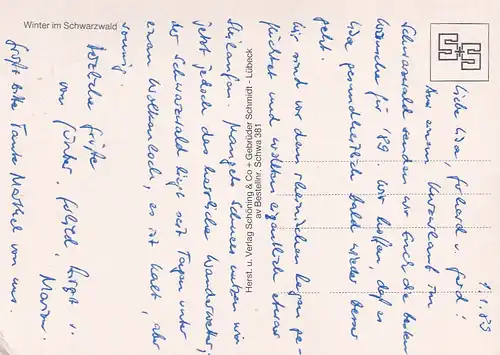 Winter im Schwarzwald
1.1.89
Liebe Lisa, Erhard u. Gerd!
Aus einem Kurzurlaub im
Schwarzwald senden wir Euch die besten
Wünsche für '89. Wir hoffen, daß es
Lisa gesundheitlich bald wieder besser
geht.
Wir sind vor dem rheinischen Regen ge-
flüchtet und wollten eigentlich etwas
Skilaufen. Mangels Schnees nutzen wir
jetzt jedoch das herrliche Wanderwetter;
der Schwarzwald liegt seit Tagen unter
einem Wolkenloch, es ist kalt, aber
sonnig.
Herzliche Grüße
von Günter, Birgit u.
Marion.
Grüßt bitte Tante von uns.
Herst. u. Verlag Schöning & Co + Gebrüder Schmidt - Lübeck
av Bestellnr. Schwa 381